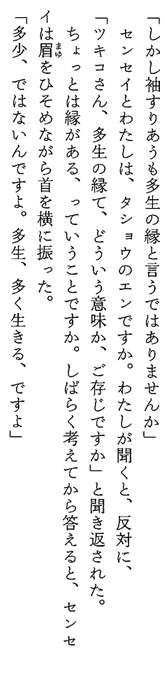 「しかし袖すりあうも多生の縁と言うではありませんか」
　センセイとわたしは、タショウのエンですか。わたしが聞くと、反対に、
「ツキコさん、多生の縁て、どういう意味か、ご存じですか」と聞き返された。
　ちょっとは縁がある、っていうことですか。しばらく考えてから答えると、センセ
イは眉まゆをひそめながら首を横に振った。
「多少、ではないんですよ。多生、多く生きる、ですよ」